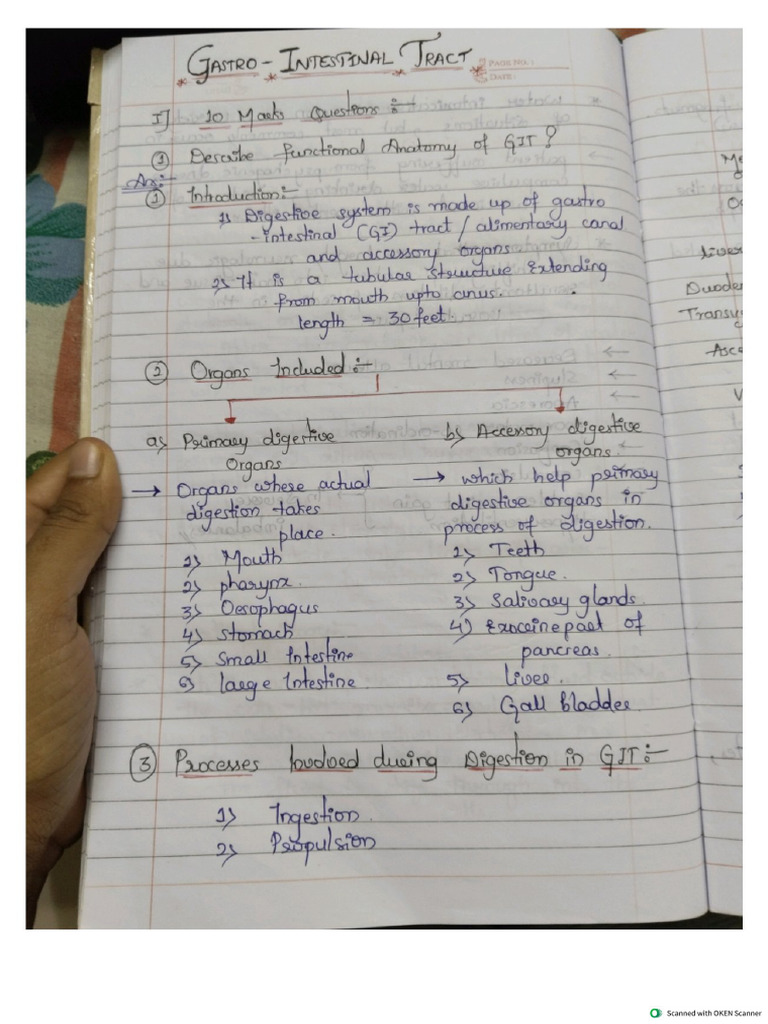 GASTRO - INTESTINAL TRACT
PAGE NO.:
DATE:
I] 10 Marks Questions :-
① Describe functional Anatomy of GIT ?
Ans:-
① Introduction:-
1) Digestive system is made up of gastro
-intestinal (GI) tract / alimentary canal
and accessory organs.
2) It is a tubular structure extending
from mouth upto anus.
length = 30 feet.
② Organs Included :-
a) Primary digestive
Organs
→ Organs where actual
digestion takes
place.
1) Mouth
2) pharynx.
3) Oesophagus
4) stomach
5) small Intestine
6) large Intestine.
b) Accessory digestive
organs.
→ which help primary
digestive organs in
process of digestion.
1) Teeth
2) Tongue.
3) Salivary glands.
4) Exocrine part of
pancreas.
5) liver.
6) Gall bladder.
③ Processes Involved during Digestion in GIT :-
1) Ingestion.
2) Propulsion
Liver
Duode
Transv
Asce
Scanned with OKEN Scanner